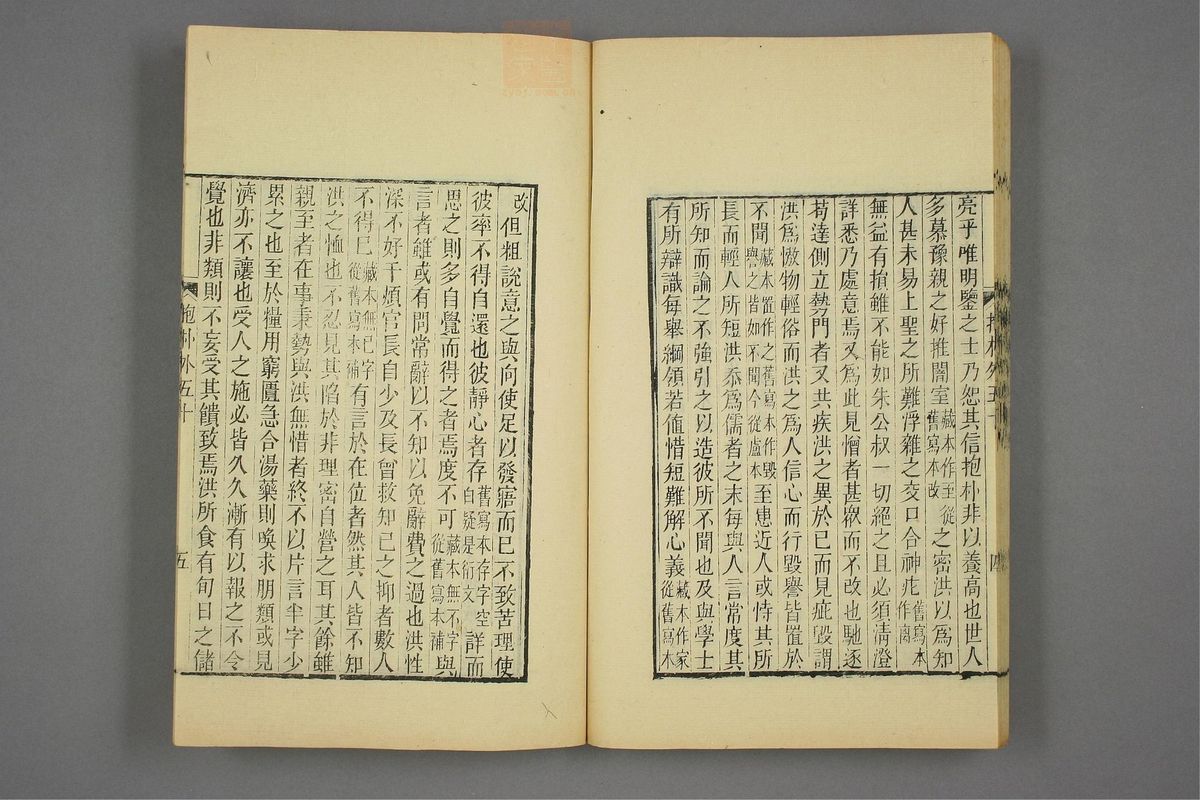 亮乎唯明鑒之士乃恕其信抱朴非以養高也世人
多慕豫親之好推闇室藏本作至從舊寫本改之密洪以爲知
人甚未易上聖之所難浮雜之交口合神疪舊寫本作离
無益有損雖不能如朱公叔一切絕之且必須清澄
詳悉乃處意焉又爲此見憎者甚衆而不改也馳逐
苟達側立勢門者又共疾洪之異於己而見疵毀謂
洪爲慠物輕俗而洪之爲人信心而行毀譽皆置於
不聞藏本置作之舊寫本作毀譽之皆如不聞今從盧本至患近人或恃其所
長而輕人所短洪忝爲儒者之末每與人言常度其
所知而論之不強引之以造彼所不聞也及與學士
有所辯識每舉綱領若値惜短難解心義藏本作家從舊寫本
抱朴外五十
四
改但粗說意之與向使足以發寤而已不致苦理使
彼率不得自還也彼靜心者存舊寫本存字空自疑是衍文詳而
思之則多自覺而得之者焉度不可藏本無不字從舊寫本補與
言者雖或有問常辭以不知以免辭費之過也洪性
深不好干煩官長自少及長曾救知己之抑者數人
不得已藏本無已字從舊寫本補有言於在位者然其人皆不知
洪之恤也不忍見其陷於非理密自營之耳其餘雖
親至者在事秉勢與洪無惜者終不以片言半字少
累之也至於糧用窮匱急合湯藥則喚求朋類或見
濟亦不讓也受人之施必皆久久漸有以報之不令
覺也非類則不妄受其饋致焉洪所食有旬日之儲
抱朴外五十
五